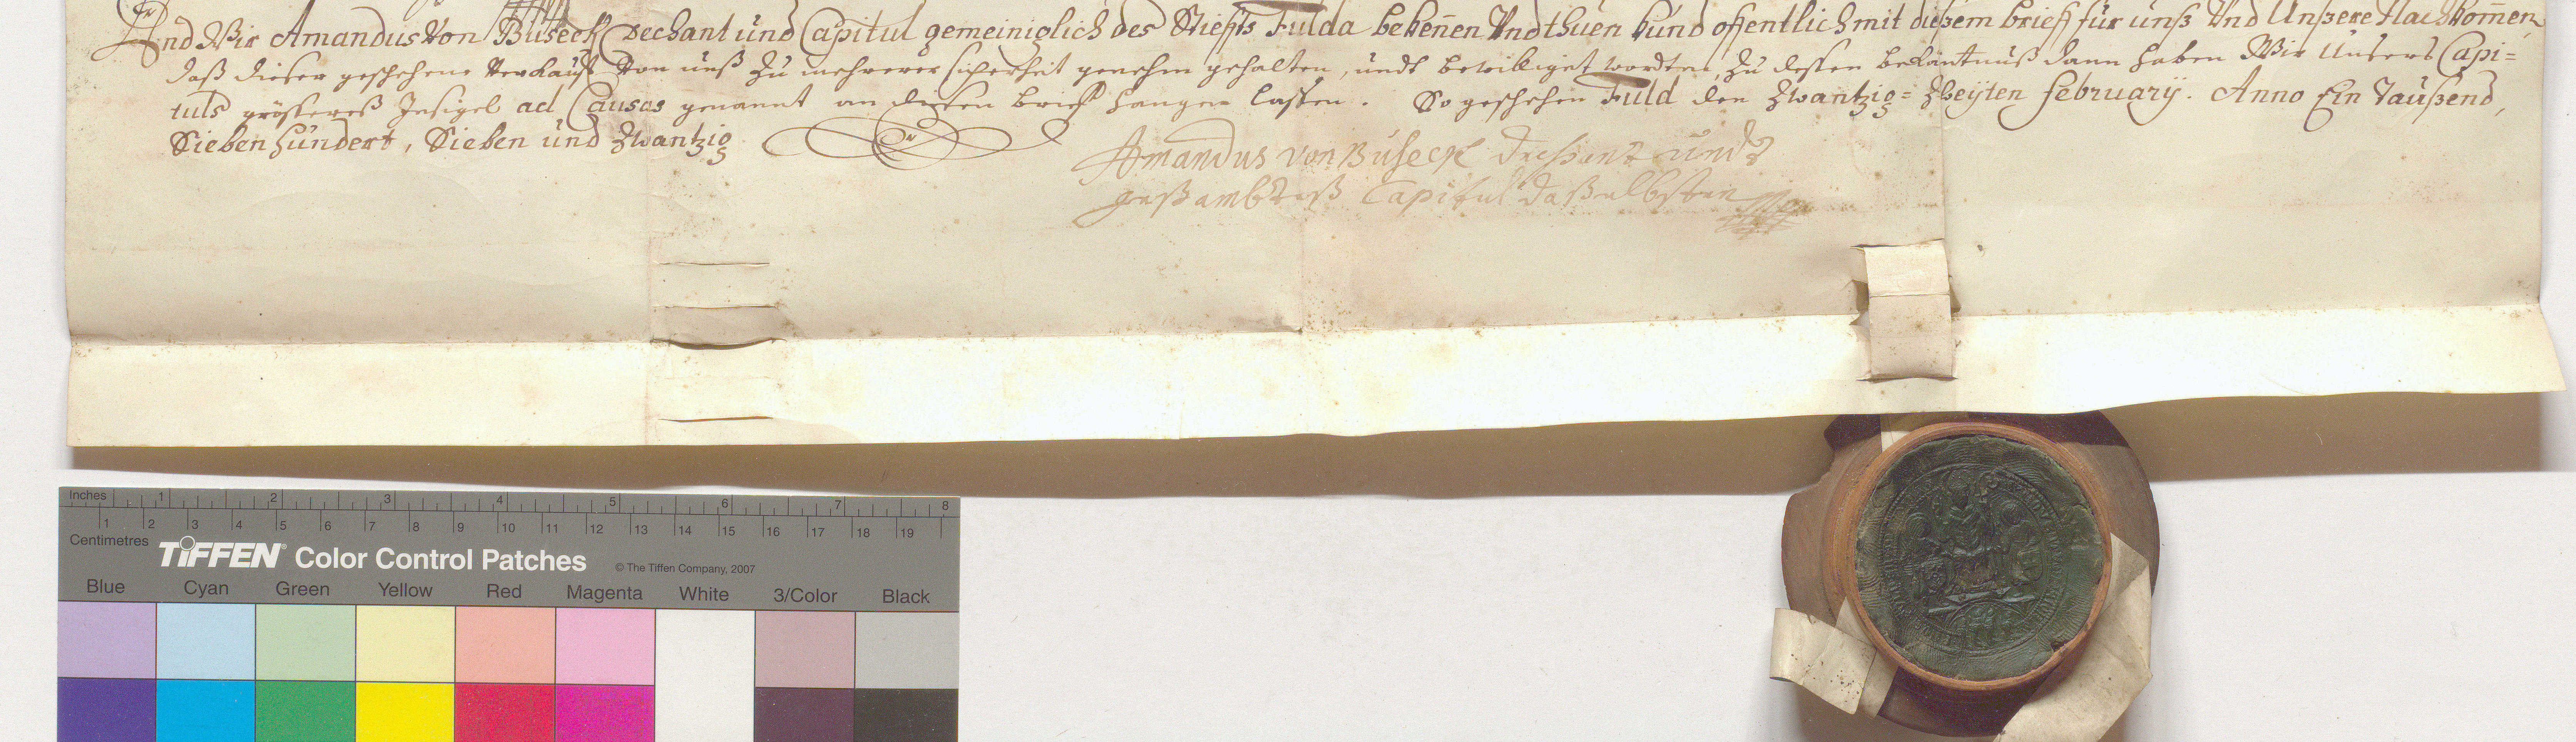 Und Wir Amandus Von Buseck Dechant und Capitul gemeiniglich des Stieffts Fulda bekeñen Vnd thuen kund offentlich mit dießem brieff für unß Vnd Unßere Nachkom̃en,
daß dießer geschehene Verkauff Von unß zu mehrerer sicherheit genehm gehalten, undt bewilliget wordten, zu dessen bekäntnuß dann haben Wir Unsers Capi=
tuls grösseres Insigel ad Causas genannt an dießen brieff hangen lassen. So geschehen Fuld den Zwantzig= Zweÿten februarÿ. Anno Ein Taußend,
Sieben hundert, Sieben und Zwantzig
Amandus von Buseck Dechant undt
geßambteß Capitul daßelbsten
Inches 1 2 3 4 5 6 7 8
1 2 3 4 5 6 7 8 9 10 11 12 13 14 15 16 17 18 19
Centimetres
TIFFEN® Color Control Patches © The Tiffen Company, 2007
Blue Cyan Green Yellow Red Magenta White 3/Color Black